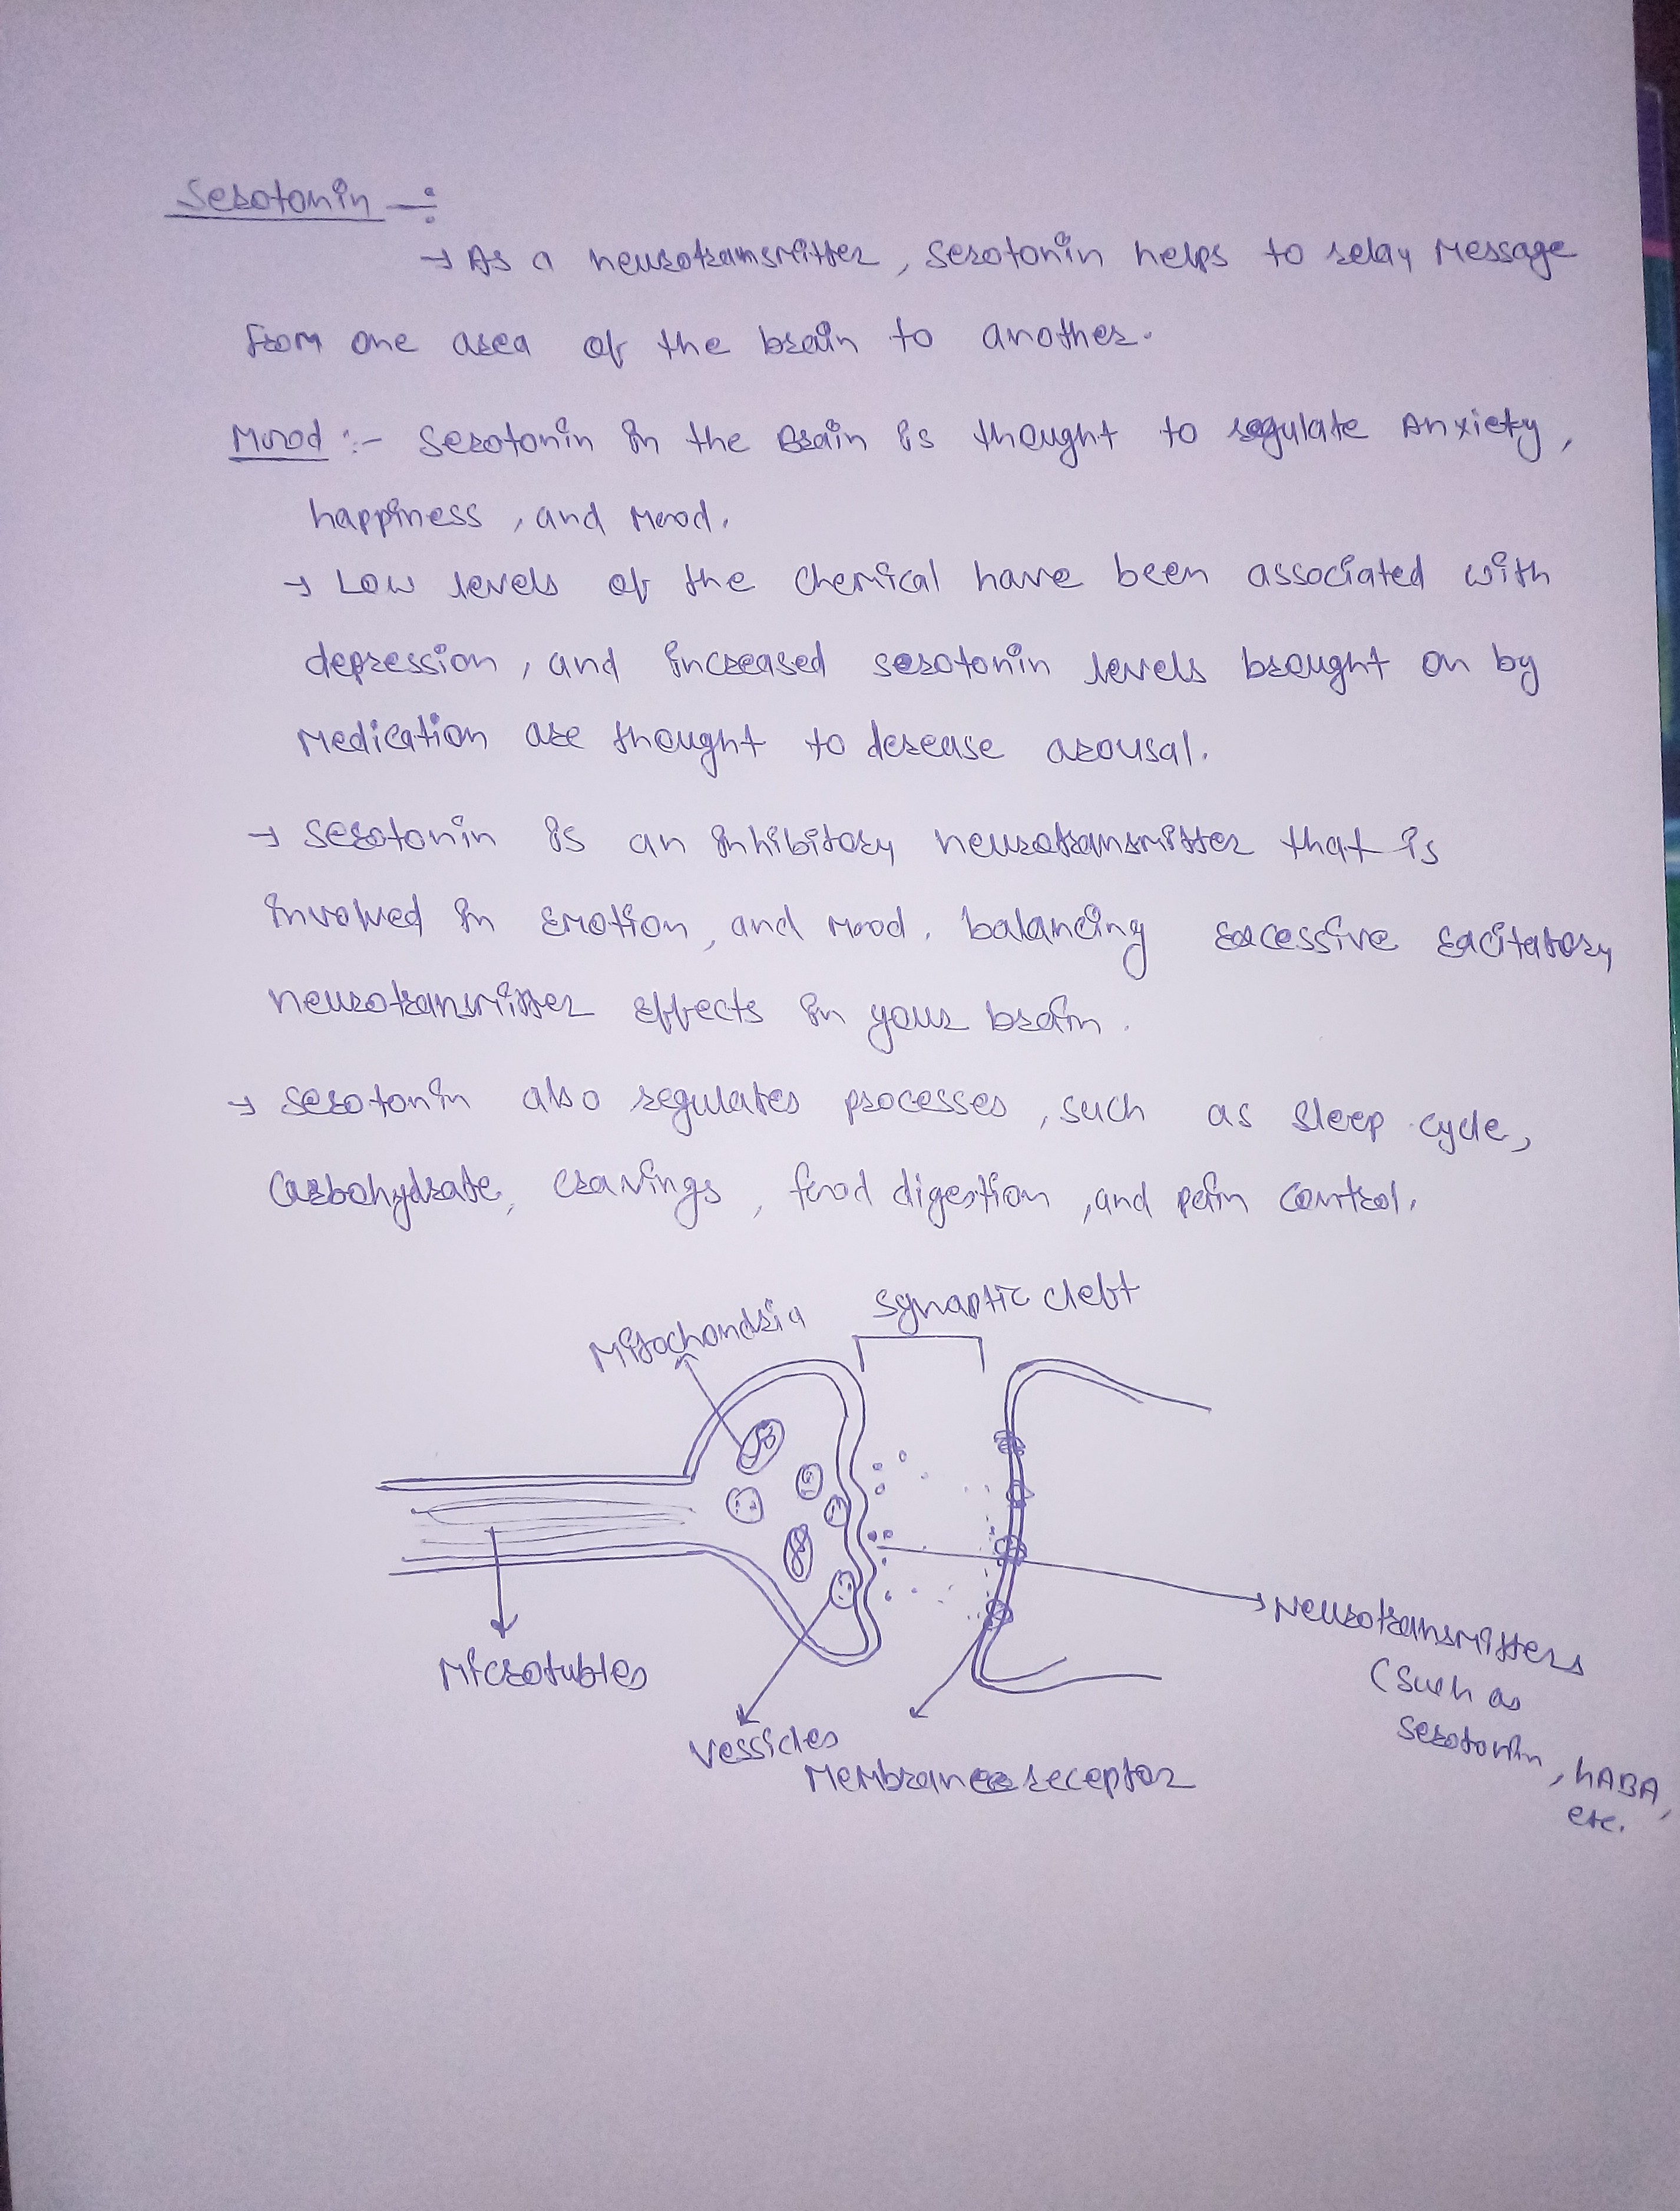 Serotonin -:
→ As a neurotransmitter, serotonin helps to relay Message
from one area of the brain to another.
Mood :- Serotonin in the Brain is thought to regulate Anxiety,
happiness, and Mood.
→ Low levels of the chemical have been associated with
depression, and increased serotonin levels brought on by
Medication are thought to derease arousal.
→ Serotonin is an inhibitory neurotransmitter that is
involved in Emotion, and Mood. balancing excessive excitatory
neurotransmitter effects in your brain.
→ Serotonin also regulates processes, such as sleep cycle,
Carbohydrate, cravings, food digestion, and pain control.
Synaptic cleft
Mitochondria
Neurotransmitters
(Such as
serotonin, GABA,
etc.
Microtubles
Vessicles
Membrane receptor